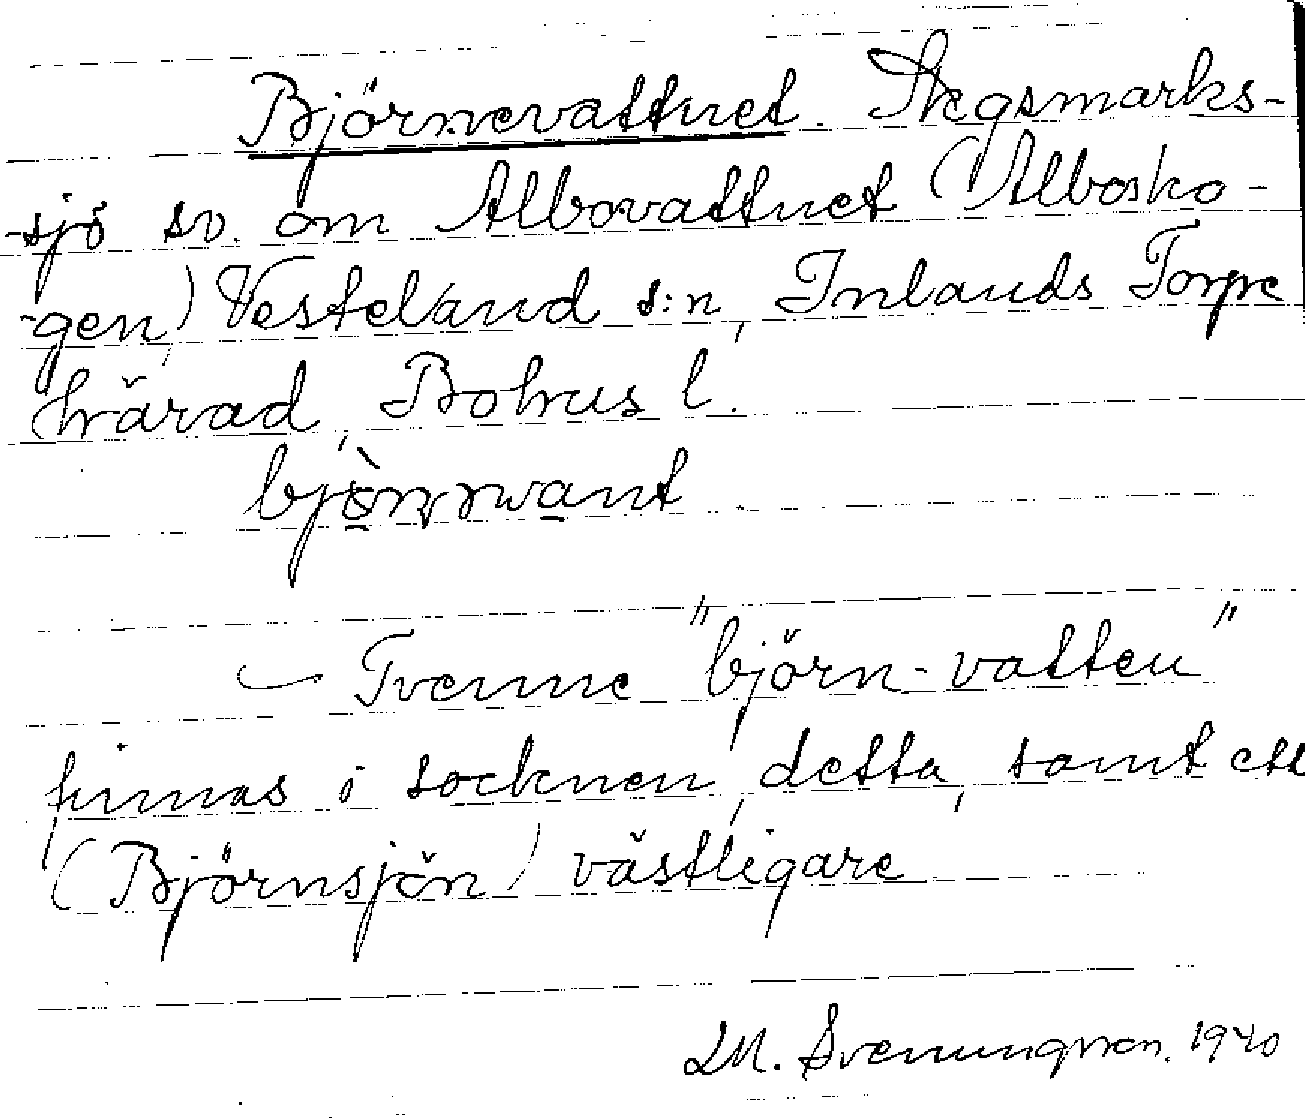 Björnevattnet. Skogsmarks-
-sjö sv. om Albovattnet (Albosko-
-gen) Vesterland s:n, Inlands Torpe
härad, Bohus l.
Tvenne "björn-vatten"
finnas i socknen, detta, samt ett
(Björnsjön) västligare
M. Svenungsson. 1940